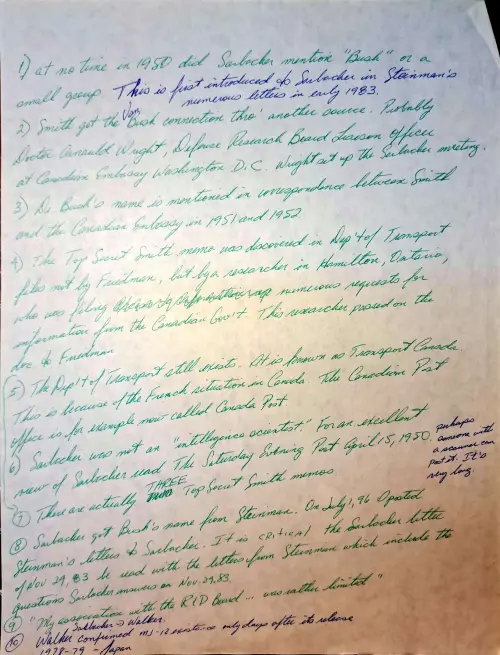 1) at no time in 1950 did Sarbacher mention "Bush" or a
small group This is first introduced to Sarbacher in Steinman's
numerous letters in early 1983.
2) Smith got the Van Bush connection thro' another source. Probably
Doctor Wright, Defense Research Board Liaison officer
at Canadian Embassy Washington D.C. Wright set up the Sarbacher meeting.
3) Dr. Bush's name is mentioned in correspondence between Smith
and the Canadian Embassy in 1951 and 1952.
4) The Top Secret Smith memo was discovered in Dep't of Transport
files not by Friedman, but by a researcher in Hamilton, Ontario,
who was filing numerous requests for
information from the Canadian Gov't. This researcher passed on the
doc to Friedman
5) The Dep't of Transport still exists. It is known as Transport Canada
This is because of the French situation in Canada. The Canadian Post
office is for example now called Canada Post
6) Sarbacher was not an "intelligence scientist." For an excellent
view of Sarbacher read The Saturday Evening Post April 15, 1950.
perhaps
someone with
a scanner can
post it. It's
very long
7) There are actually THREE Top Secret Smith memos.
8) Sarbacher got Bush's name from Steinman. On July 1, 96 I posted
Steinman's letters to Sarbacher. It is CRITICAL the Sarbacher letter
of Nov 29, 83 be read with the letters from Steinman which include the
questions Sarbacher answers on Nov. 29, 83.
9) "My association with the R+D Board... was rather limited"
Sarbacher → Walker.
10) Walker confirmed MJ-12 existence only days after its release
1978-79 - Japan